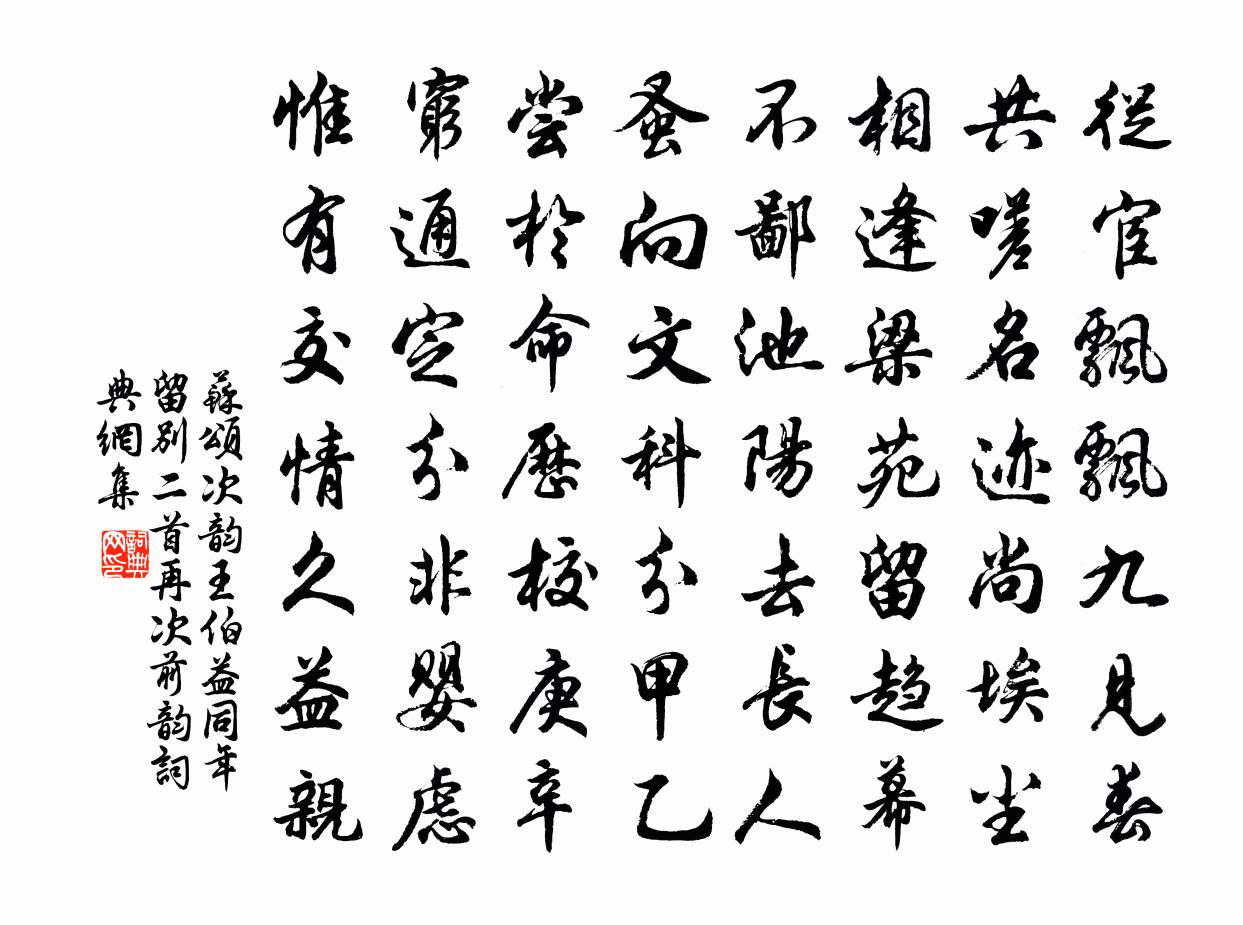 從宦飄飄九見春
共嗟名迹尚埃塵
相逢梁苑留趋幕
不鄙池陽去長人
蚤向文科分甲乙
尝於命歷校庚辛
窮通定分非嬰慮
惟有交情久益親
蘇頌次韵王伯益同年
留别二首再次前韵詞
典網集
詞典
网印